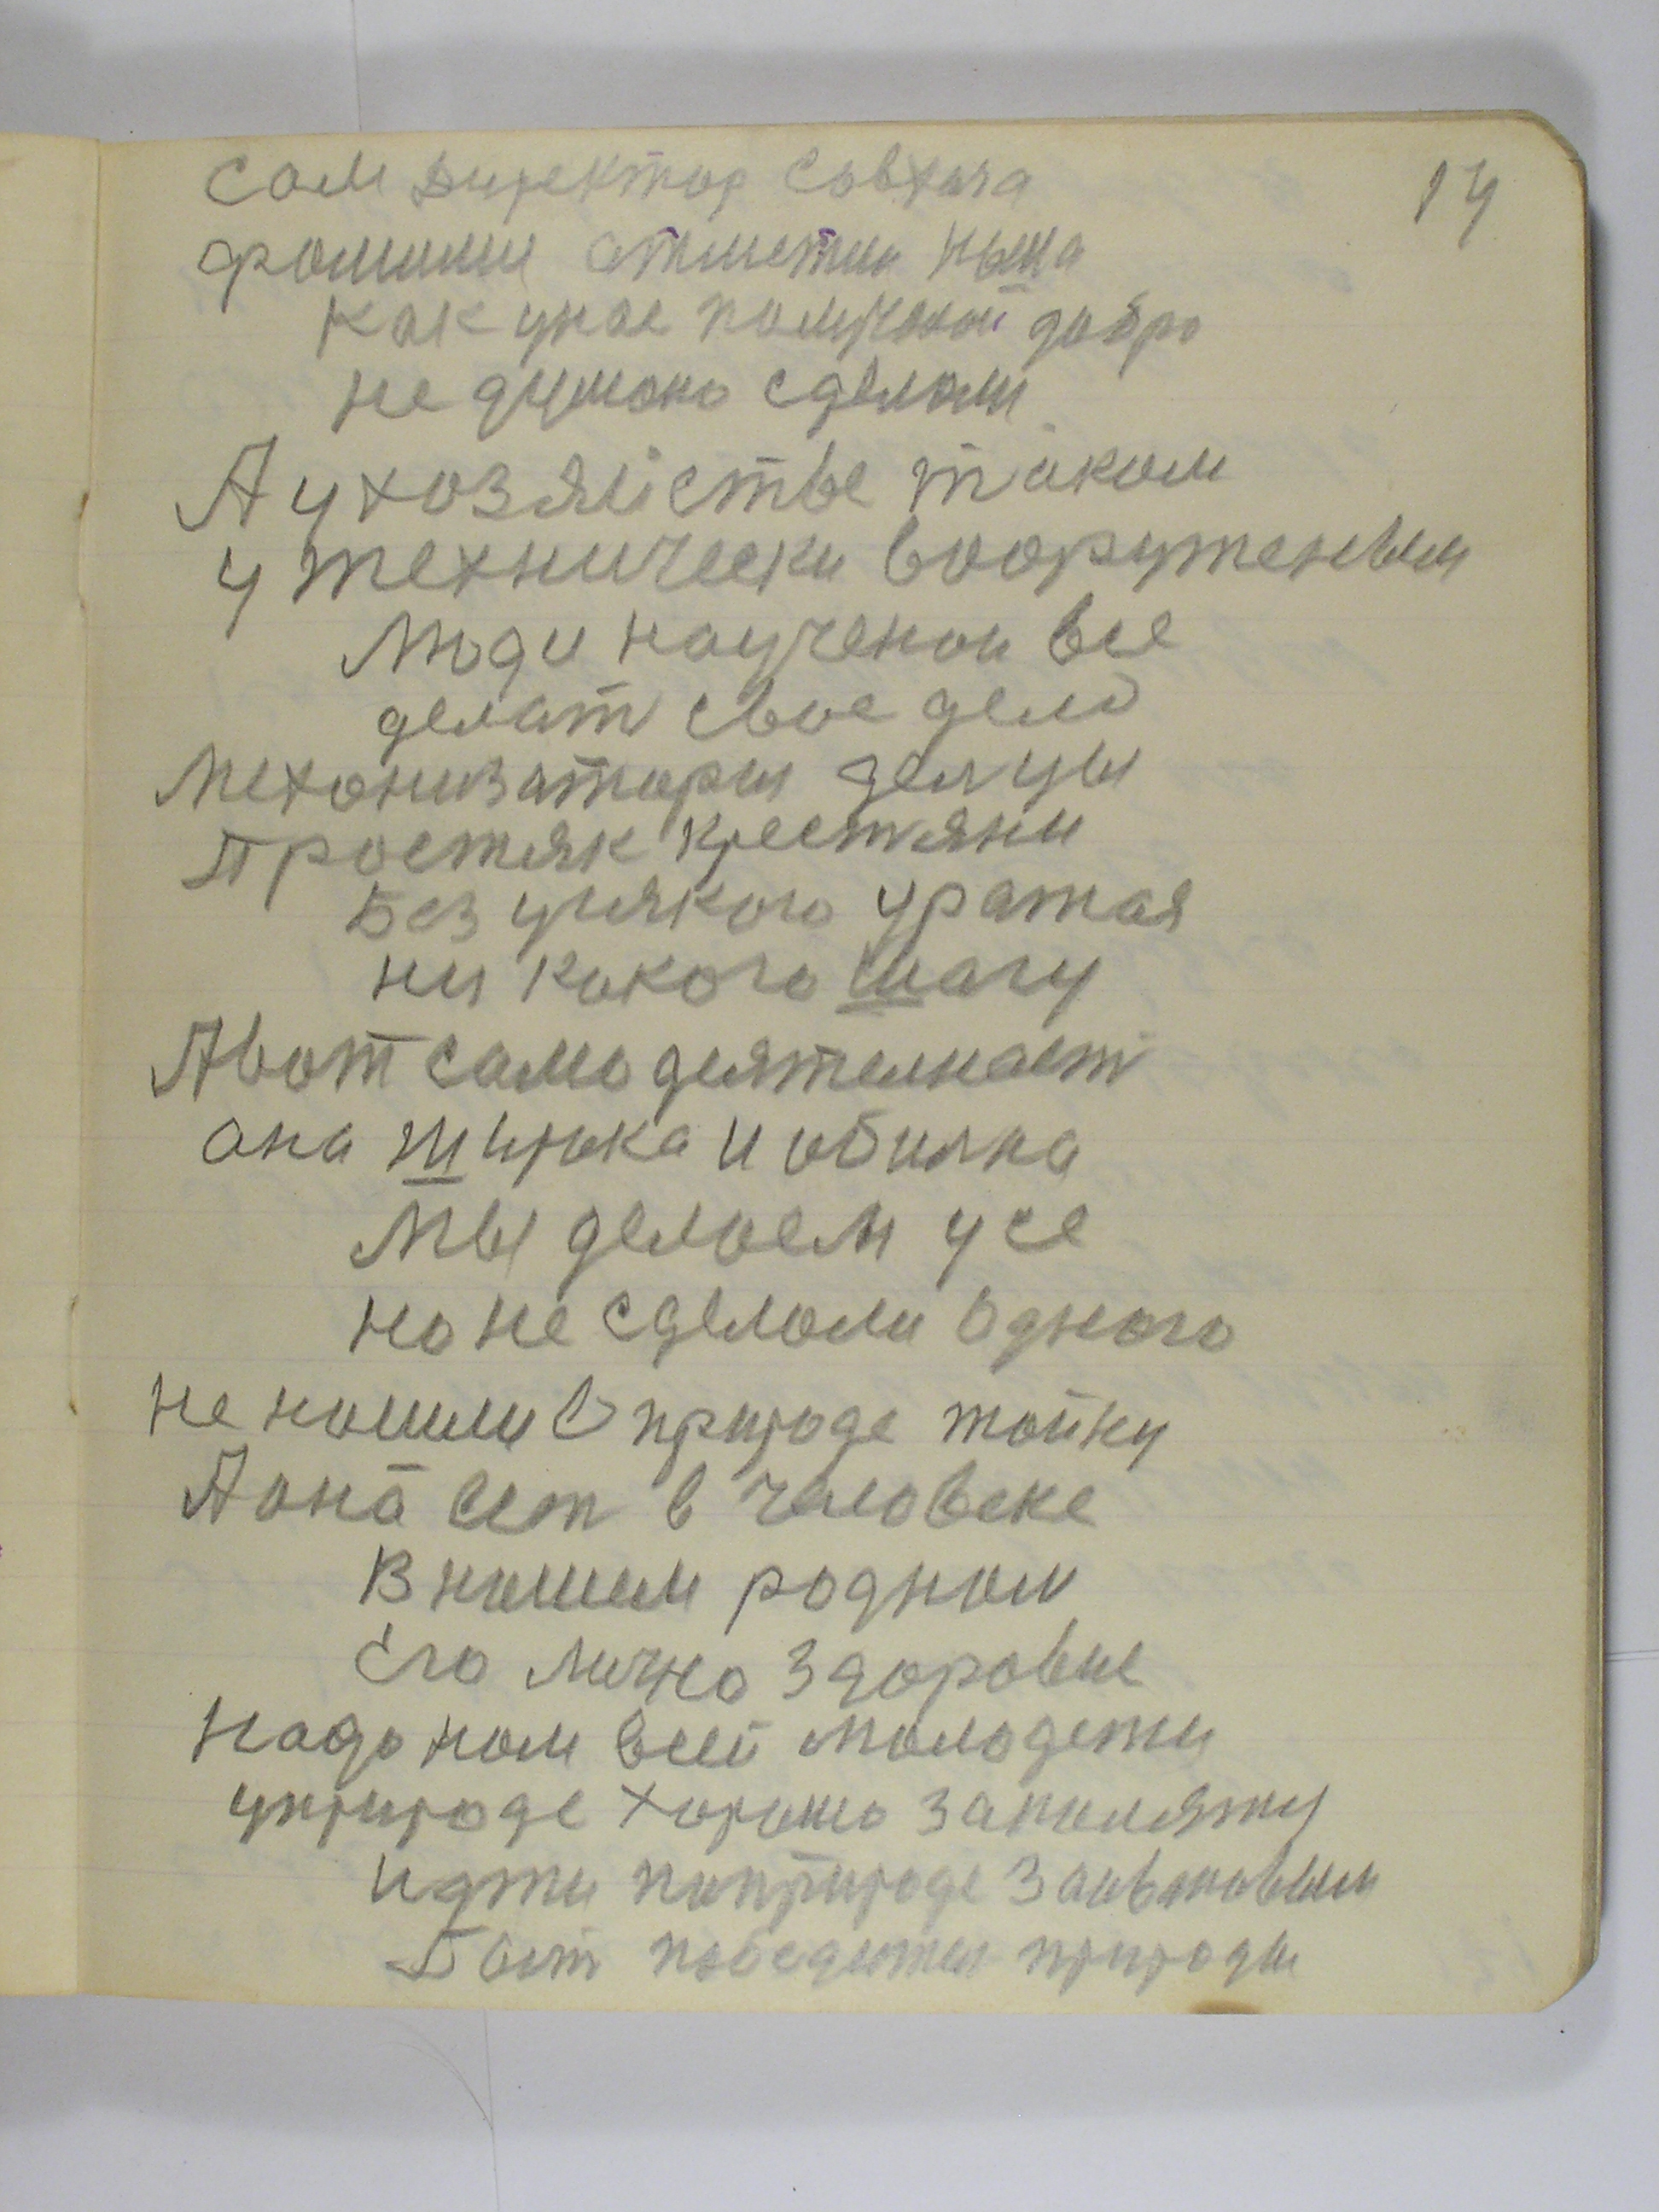 14
Сам Директор Совхоза
отметил ныма
Как унас получоной добро
не думоно сделали
А у хозяйстве таком
у технически вооруженым
Люди научоной все
делат свое дело
Механизаторы делцы
Простяк крестяни
Без усякого уратая
ни какого шагу
Авот само деятелност
она широка и обилна
Мы делаем усе
но не сделали одного
не нашли в природе тайну
А она ест в человеке
В нашем родном
Его лично здоровие
Надо нам всей молодежи
уприроде хорошо
идти поприроде
Быт победители природы